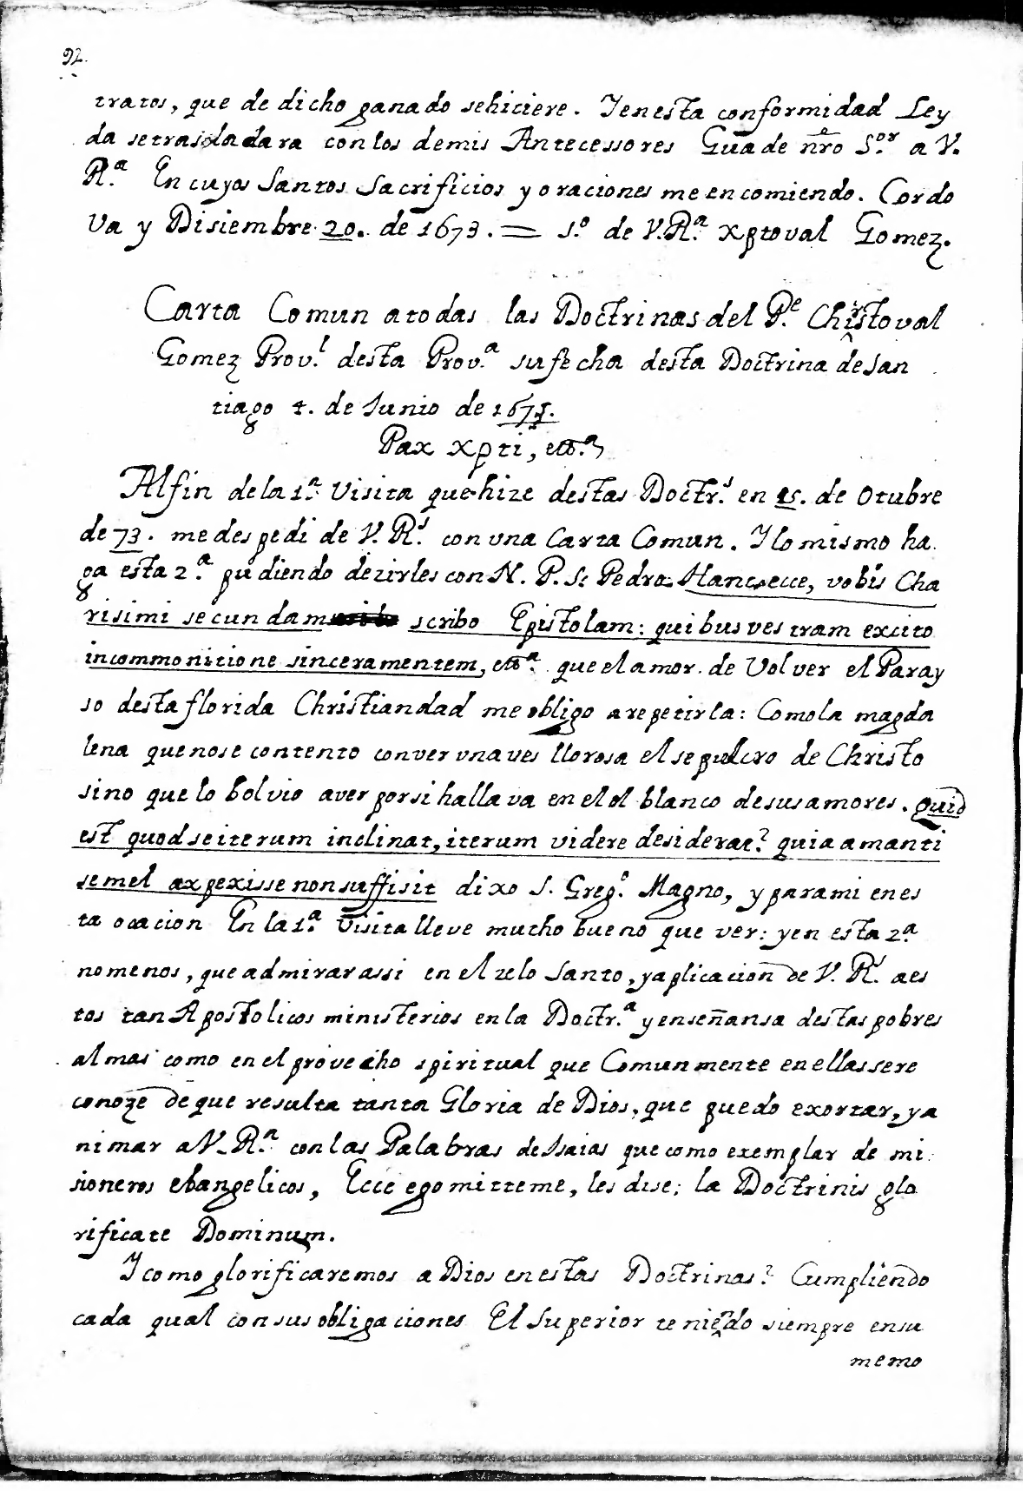 92.
tratos, que de dicho ganado sehiciere. Yenesta conformidad Ley
da setrasladara con los demis Antecessores Guade nr̃o S.ᵒʳ a V.
R.ᵃ En cuyos Santos Sacrificios y oraciones me encomiendo. Cordo
va y Disiembre 20. de 1673. = S.º de V.R.ᵃ xptoval Gomez.
Carta Comun atodas las Doctrinas del P.ᵉ Christoval
Gomez Prov.ˡ desta Prov.ᵃ sufecha desta Doctrina deSan
tiago 4. de Junio de 1675.
Pax xpti, etc.ᵃ
Alfin dela 1.ᵃ Visita que hize destas Doctr.ˢ en 15. de Otubre
de 73. medespedi de V.R.ˢ con una Carta Comun. Ylo mismo ha
ga esta 2.ᵃ pudiendo dezirles con N. P. S. Pedro vobis Cha
risimi secundam scribo Epistolam: quibus vestram excito
incommonitione sinceramentem, etc.ᵃ que el amor de Volver el Paray
so desta florida Christiandad me obligo arepetirla: Comola magda
lena quenose contento conver unaves llorosa el sepulcro de Christo
sino que lo bolvio aver porsi hallava en el el blanco desusamores. quid
est quod seiterum inclinat, iterum videre desiderat? quia amanti
semel aspexisse nonsuffisit dixo S. Greg.º Magno, y parami enes
ta ocacion En la 1.ᵃ Visita lleve mucho bueno que ver: yen esta 2.ᵃ
nomenos, que admirar assi en el zelo Santo, yaplicacion de V. R.ˢ aes
tos tan Apostolicos ministerios enla Doctr.ᵃ y enseñansa destas pobres
almas como en el provecho spiritual que Comunmente enellassere
conoze de que resulta tanta Gloria de Dios, que puedo exortar, ya
nimar aV. R.ᵃ con las Palabras de Isaias que como exemplar de mi
sioneros ebangelicos, Ecce ego mitteme, les dise; la Doctrinis glo
rificate Dominum.
Ycomo glorificaremos a Dios enestas Doctrinas? Cumpliendo
cada qual consusobligaciones El Superior teniẽdo siempre ensu
memo